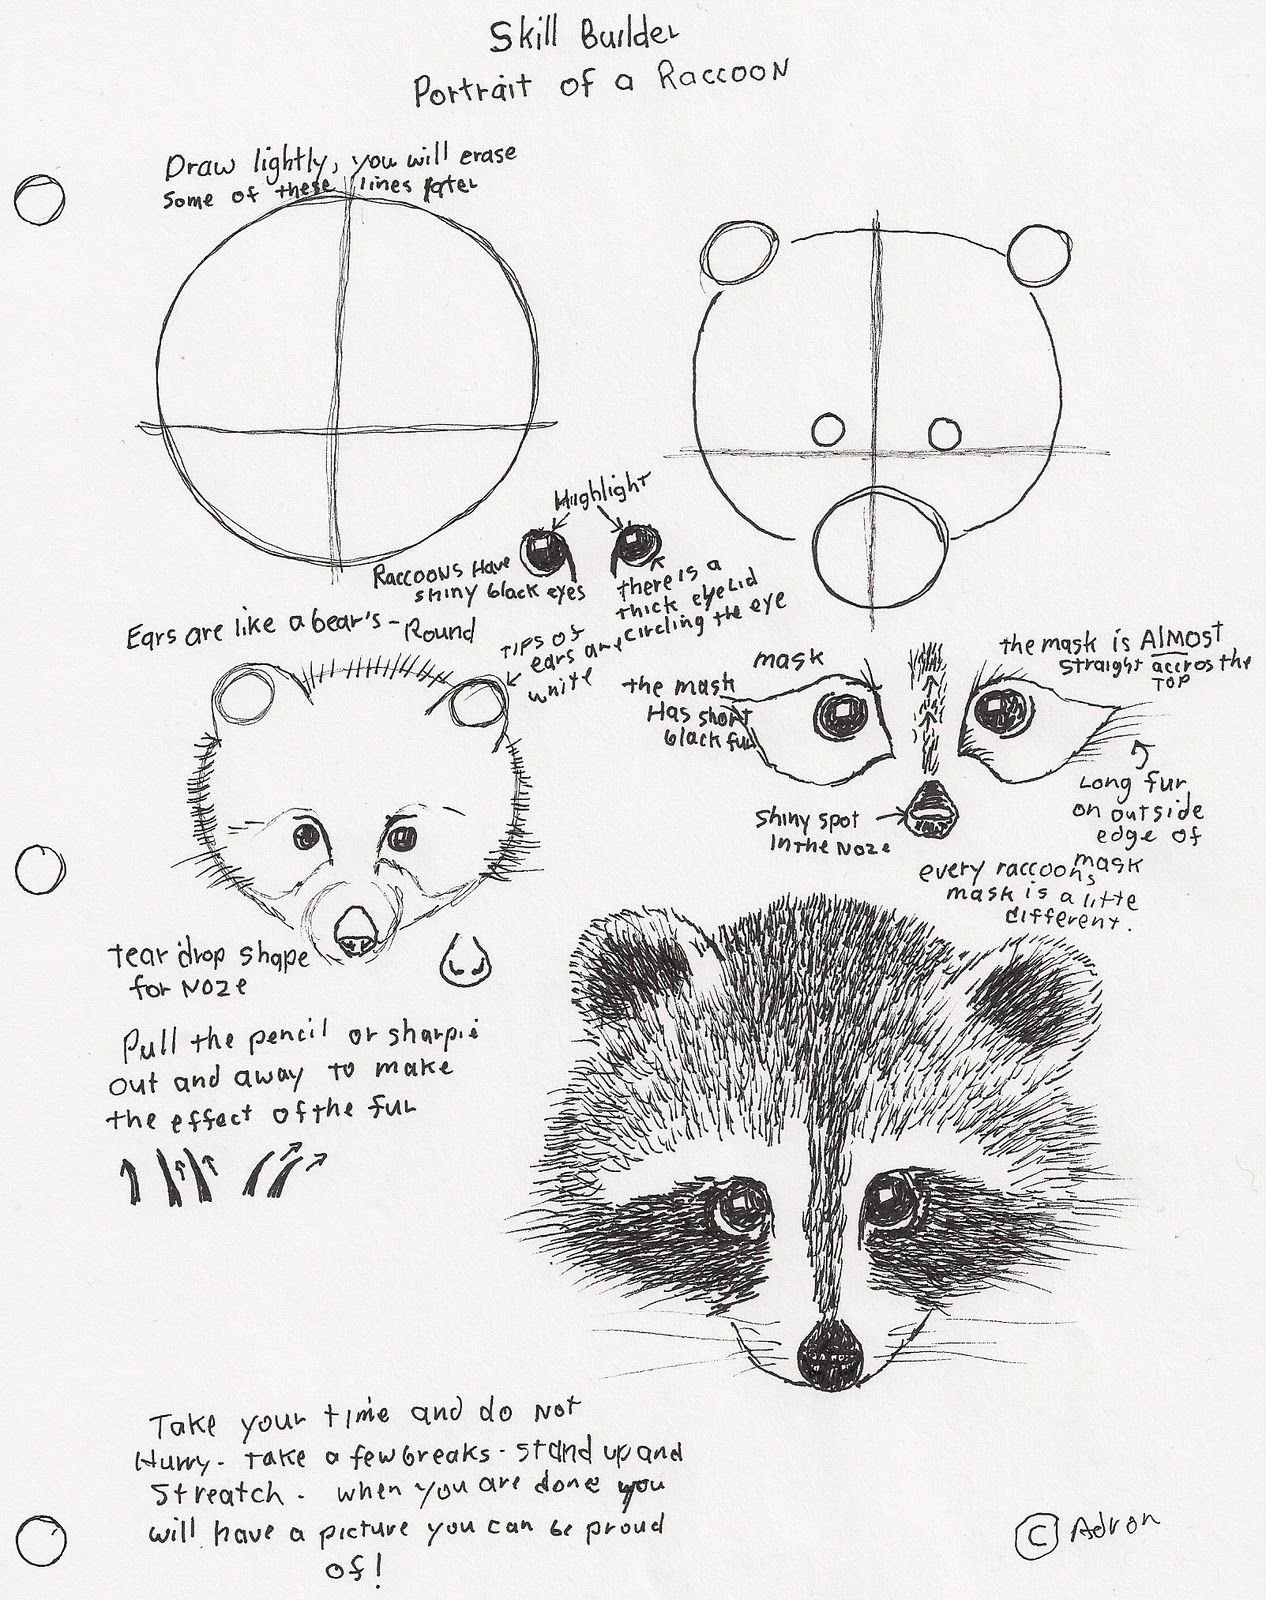 Skill Builder
Portrait of a Raccoon
Draw lightly, you will erase
some of these lines later
Highlight
Raccoons Have
shiny black eyes
there is a
thick eyelid
circling the eye
Ears are like a bear's - Round
Tips of
ears are
white
mask
the mask
Has short
black fur
the mask is Almost
straight accros the
Top
Long fur
on outside
edge of
mask
Shiny spot
in the Noze
every raccoons
mask is a litte
different.
tear drop shape
for Noze
Pull the pencil or sharpie
out and away to make
the effect of the fur
Take your time and do not
Hurry - Take a few breaks - stand up and
Streatch - when you are done you
will have a picture you can be proud
of!
© Adron